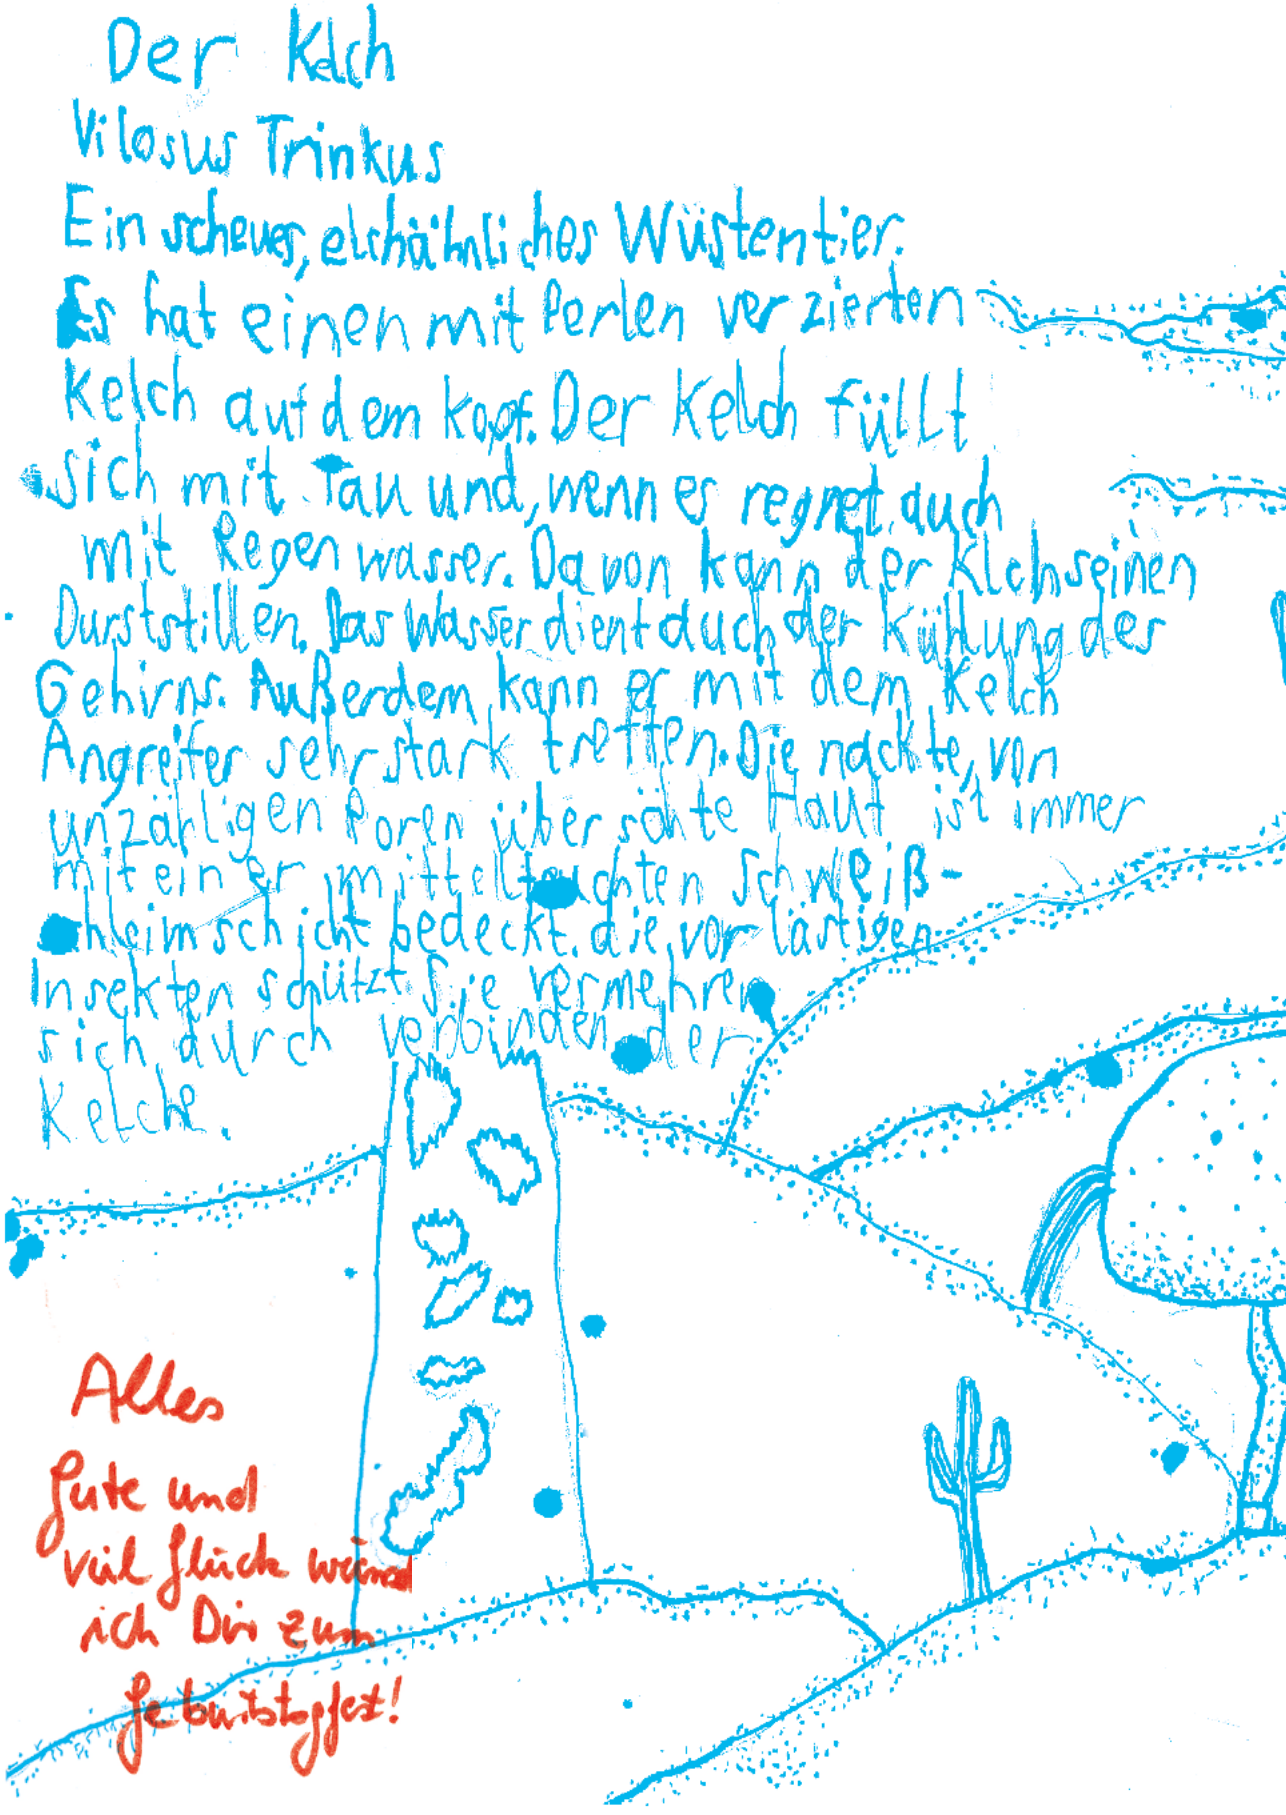 Der Kelch
Vilosus Trinkus
Ein scheues, elchähnliches Wüstentier.
Es hat einen mit Perlen verzierten
Kelch auf dem Kopf. Der Kelch füllt
sich mit Tau und, wenn es regnet, auch
mit Regenwasser. Davon kann der Klch seinen
Durst stillen. Das Wasser dient auch der Kühlung des
Gehirns. Außerdem kann er mit dem Kelch
Angreifer sehr stark treffen. Die nackte, von
unzähligen Poren übersähte Haut ist immer
mit einer mittelfeuchten Schweiß-
schleimschicht bedeckt, die vor lästigen
Insekten schützt. Sie vermehren
sich durch verbinden der
Kelche.
Alles
Gute und
viel Glück
ich Dir zum
Geburtstagfest!